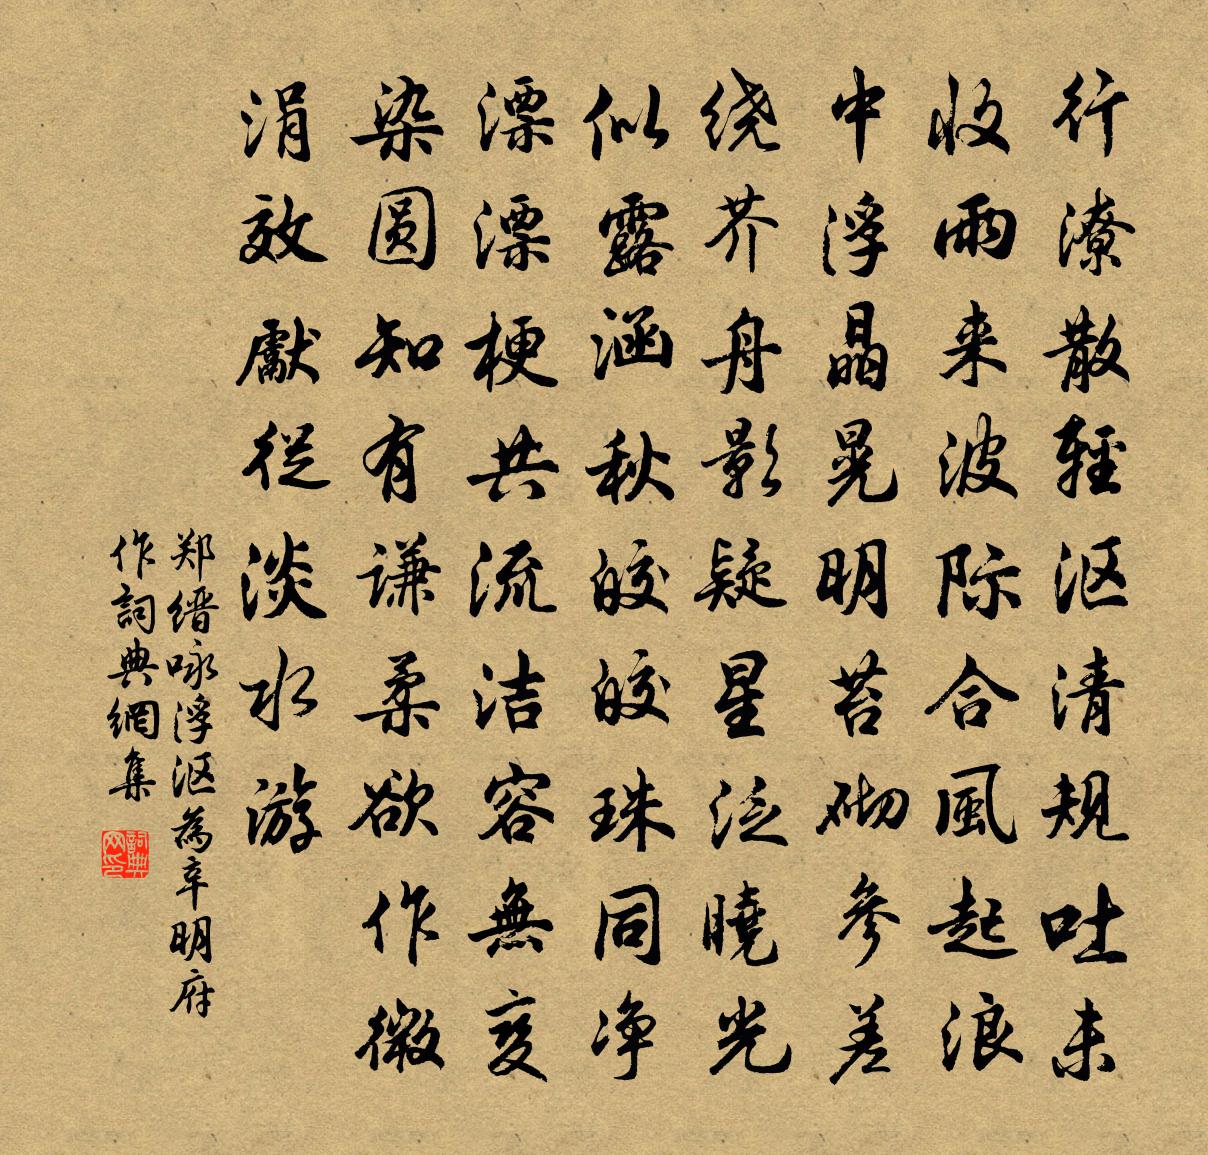 行潦散輕沤清規吐未
收雨来波际合風起浪
中浮晶晃明苔砌參差
绕芥舟影疑星泛曉光
似露涵秋皎皎珠同净
漂漂梗共流洁容無变
染圆知有谦柔欲作微
涓效獻從淡水游
郑缙咏浮沤為辛明府
作詞典網集
詞典网印